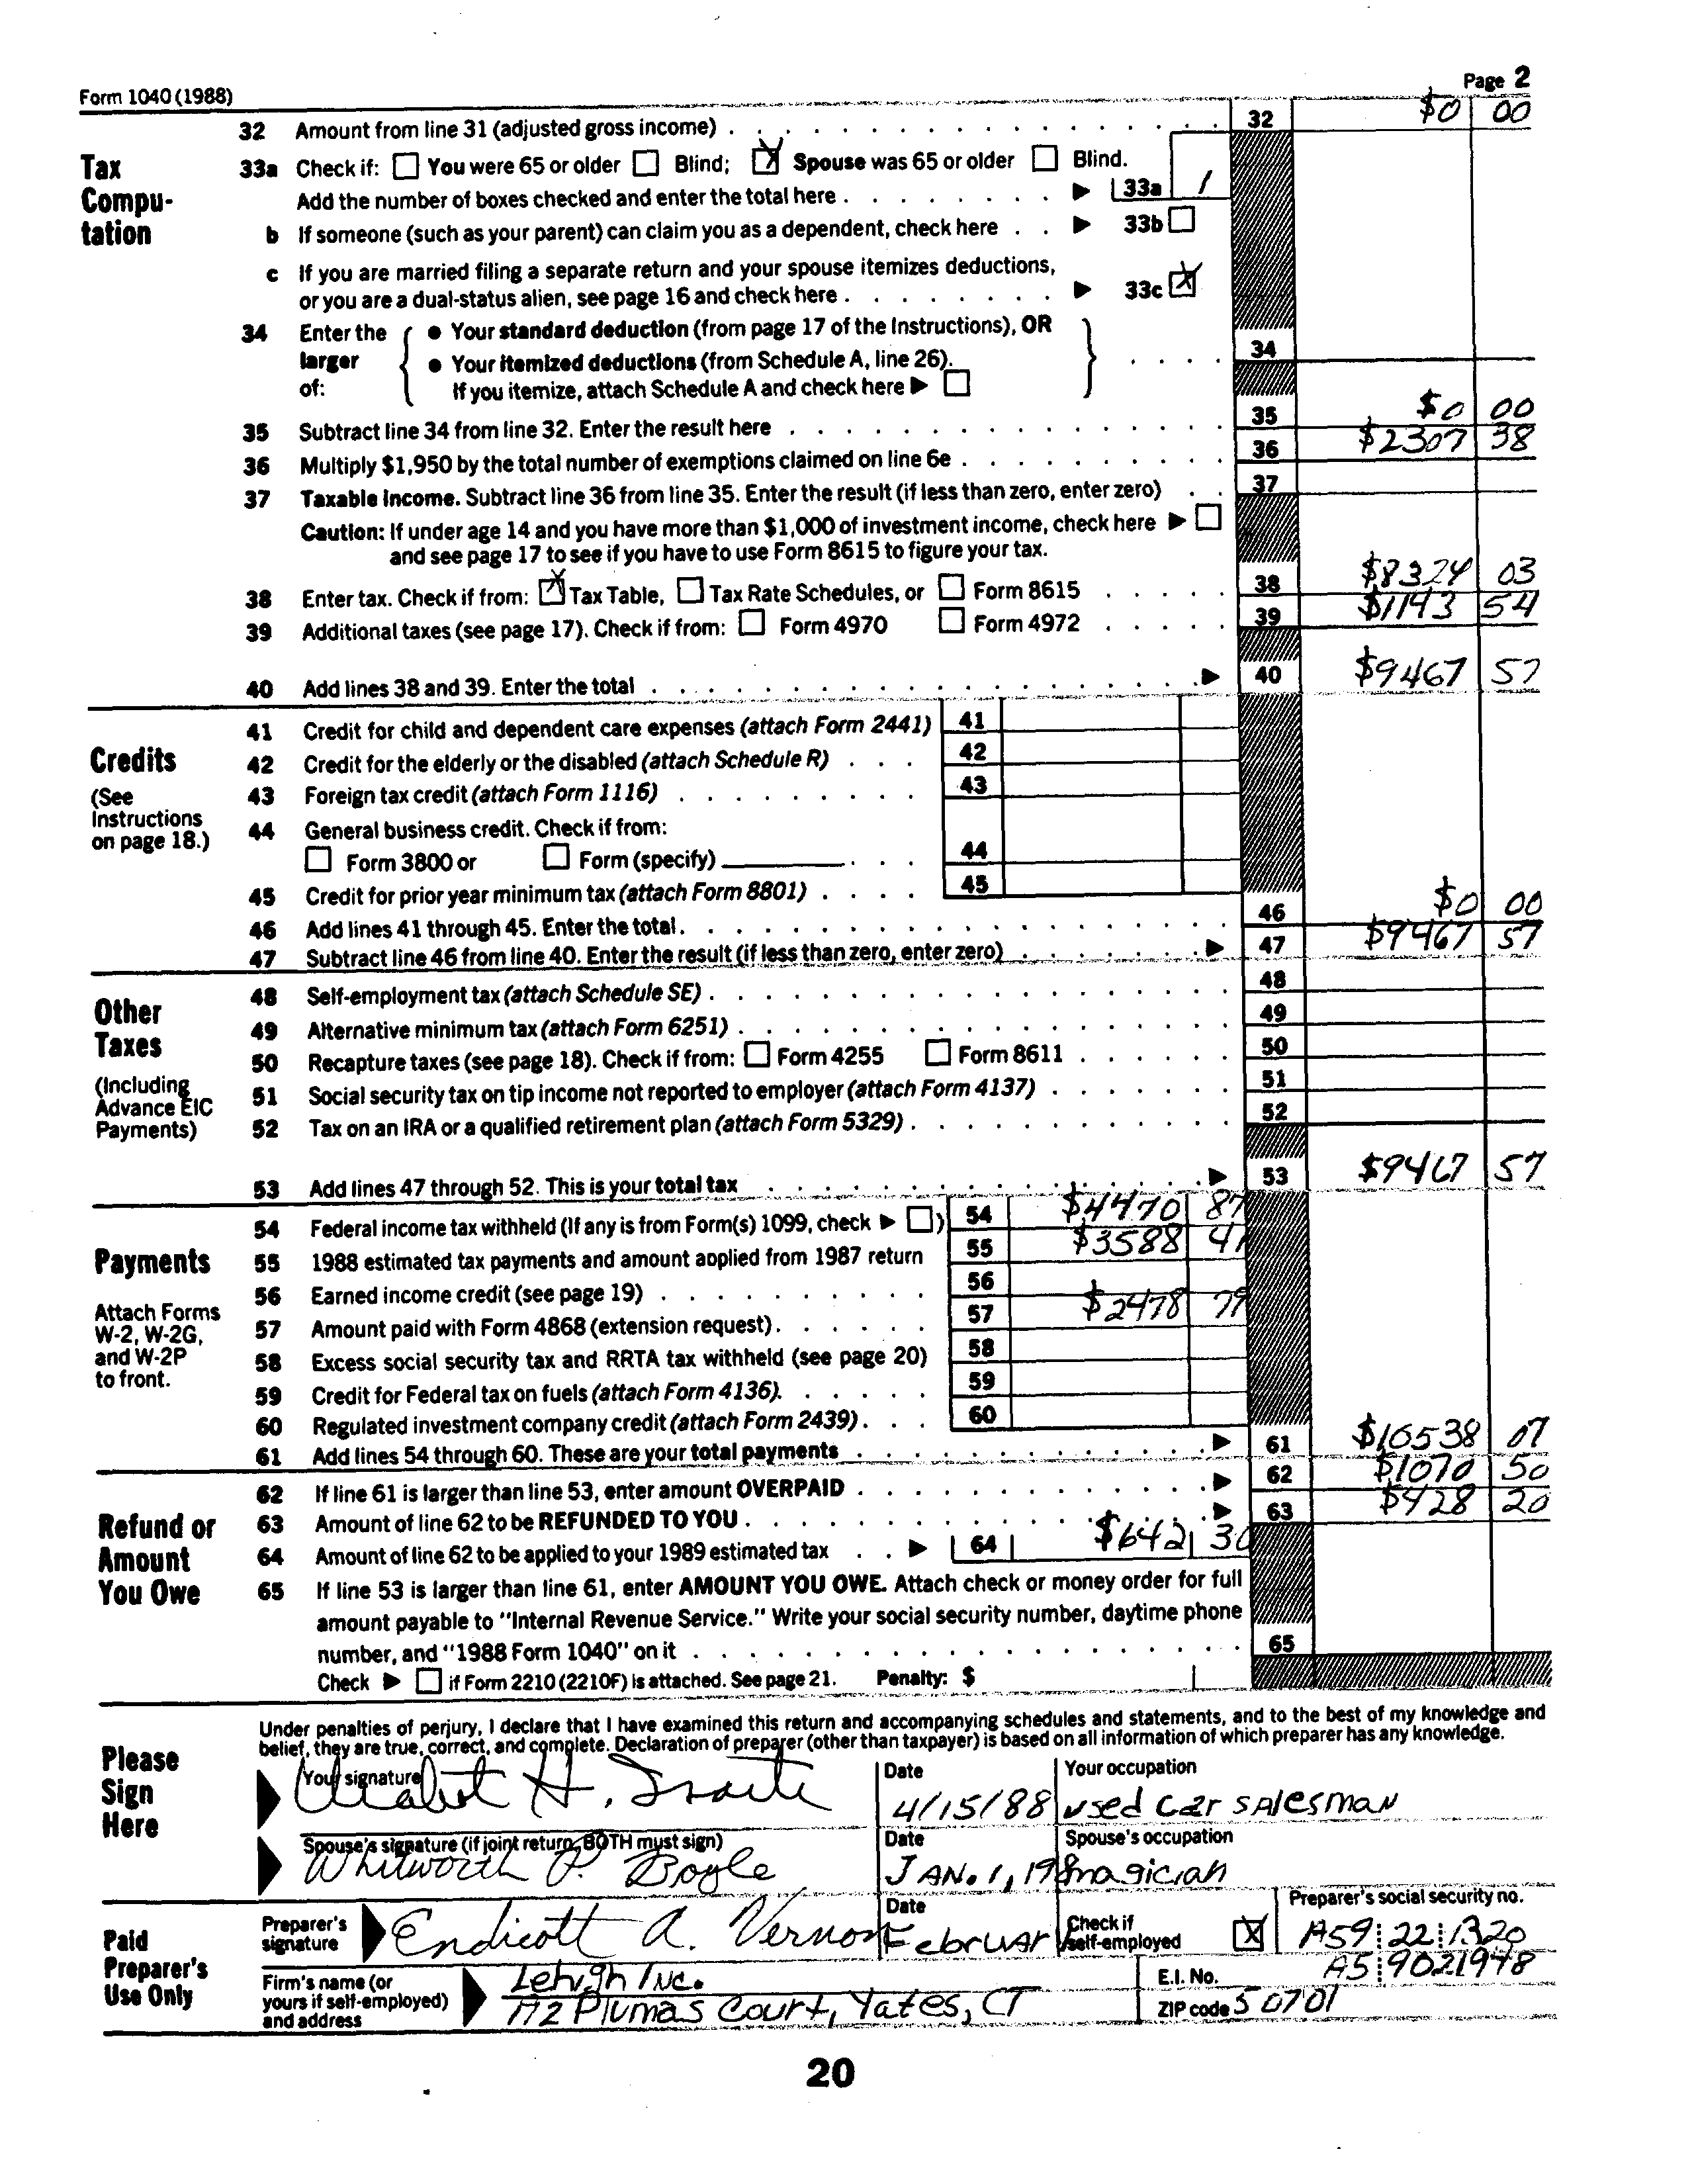 Form 1040 (1988) Page 2
32 Amount from line 31 (adjusted gross income) 32 $0 00
Tax Computation
33a Check if: You were 65 or older Blind; X Spouse was 65 or older Blind.
Add the number of boxes checked and enter the total here 33a 1
b If someone (such as your parent) can claim you as a dependent, check here 33b
c If you are married filing a separate return and your spouse itemizes deductions,
or you are a dual-status alien, see page 16 and check here 33c X
34 Enter the larger of: • Your standard deduction (from page 17 of the Instructions), OR
• Your itemized deductions (from Schedule A, line 26). 34
If you itemize, attach Schedule A and check here
35 Subtract line 34 from line 32. Enter the result here 35 $0 00
36 Multiply $1,950 by the total number of exemptions claimed on line 6e 36 $2307 38
37 Taxable income. Subtract line 36 from line 35. Enter the result (if less than zero, enter zero) 37
Caution: If under age 14 and you have more than $1,000 of investment income, check here
and see page 17 to see if you have to use Form 8615 to figure your tax.
38 Enter tax. Check if from: X Tax Table, Tax Rate Schedules, or Form 8615 38 $8324 03
39 Additional taxes (see page 17). Check if from: Form 4970 Form 4972 39 $1143 54
40 Add lines 38 and 39. Enter the total 40 $9467 57
Credits
(See Instructions on page 18.)
41 Credit for child and dependent care expenses (attach Form 2441) 41
42 Credit for the elderly or the disabled (attach Schedule R) 42
43 Foreign tax credit (attach Form 1116) 43
44 General business credit. Check if from:
Form 3800 or Form (specify) 44
45 Credit for prior year minimum tax (attach Form 8801) 45
46 Add lines 41 through 45. Enter the total 46 $0 00
47 Subtract line 46 from line 40. Enter the result (if less than zero, enter zero) 47 $9467 57
Other Taxes
(Including Advance EIC Payments)
48 Self-employment tax (attach Schedule SE) 48
49 Alternative minimum tax (attach Form 6251) 49
50 Recapture taxes (see page 18). Check if from: Form 4255 Form 8611 50
51 Social security tax on tip income not reported to employer (attach Form 4137) 51
52 Tax on an IRA or a qualified retirement plan (attach Form 5329) 52
53 Add lines 47 through 52. This is your total tax 53 $9467 57
Payments
Attach Forms W-2, W-2G, and W-2P to front.
54 Federal income tax withheld (If any is from Form(s) 1099, check ) 54 $4470 87
55 1988 estimated tax payments and amount applied from 1987 return 55 $3588 41
56 Earned income credit (see page 19) 56
57 Amount paid with Form 4868 (extension request) 57 $2478 79
58 Excess social security tax and RRTA tax withheld (see page 20) 58
59 Credit for Federal tax on fuels (attach Form 4136) 59
60 Regulated investment company credit (attach Form 2439) 60
61 Add lines 54 through 60. These are your total payments 61 $10538 07
Refund or Amount You Owe
62 If line 61 is larger than line 53, enter amount OVERPAID 62 $1070 50
63 Amount of line 62 to be REFUNDED TO YOU 63 $428 20
64 Amount of line 62 to be applied to your 1989 estimated tax 64 $642 30
65 If line 53 is larger than line 61, enter AMOUNT YOU OWE. Attach check or money order for full
amount payable to "Internal Revenue Service." Write your social security number, daytime phone
number, and "1988 Form 1040" on it 65
Check if Form 2210 (2210F) is attached. See page 21. Penalty: $
Please Sign Here
Under penalties of perjury, I declare that I have examined this return and accompanying schedules and statements, and to the best of my knowledge and
belief, they are true, correct, and complete. Declaration of preparer (other than taxpayer) is based on all information of which preparer has any knowledge.
Your signature H. Date 4/15/88 Your occupation used car salesman
Spouse's signature (if joint return, BOTH must sign) Whitworth P. Boyle Date JAN. 1, 19 Spouse's occupation magician
Paid Preparer's Use Only
Preparer's signature Endicott A. Vernon Date Februar Check if self-employed X Preparer's social security no. A59 22 1320
Firm's name (or yours if self-employed) and address Lehigh Inc. E.I. No. A5 9021978
A2 Plumas Court, Yates, CT ZIP code 50701
20